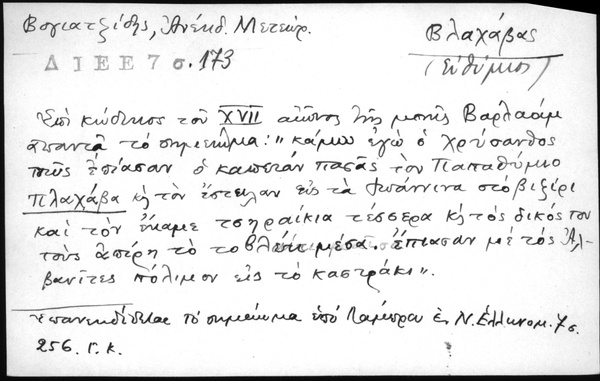 Βογιατζίδης, Ἀνέκδ. Μετεώρ.
Βλαχάβας
(Εὐθύμιος)
Δ Ι Ε Ε 7 σ. 173
Ἐπὶ κώδικος τοῦ XVII αἰῶνος τῆς μονῆς Βαρλαάμ
ἀπαντᾶ τὸ σημείωμα: "κάμω ἐγὼ ὁ Χρύσανθος
πῶς ἐπίασαν ὁ καπετὰν πασᾶς τὸν Παπαθύμιο
Πλαχάβα κὴ τὸν ἔστειλαν εἰς τὰ Ἰωάννινα στὸ βιζίρι
καὶ τὸν ἔκαμε τσηραίκια τέσσερα κὴ τὸς δικός του
τοὺς ἀσπέρη τὸ μέσα. ἔπιασαν μὲ τὸς Ἀλ-
βανίτες πόλιμον εἰς τὸ καστράκι".
Ἐπανεκδίδεται τὸ σημείωμα ὑπὸ Λάμπρου ἐν Ν. Ἑλληνομ. 7 σ.
256. Γ. Κ.